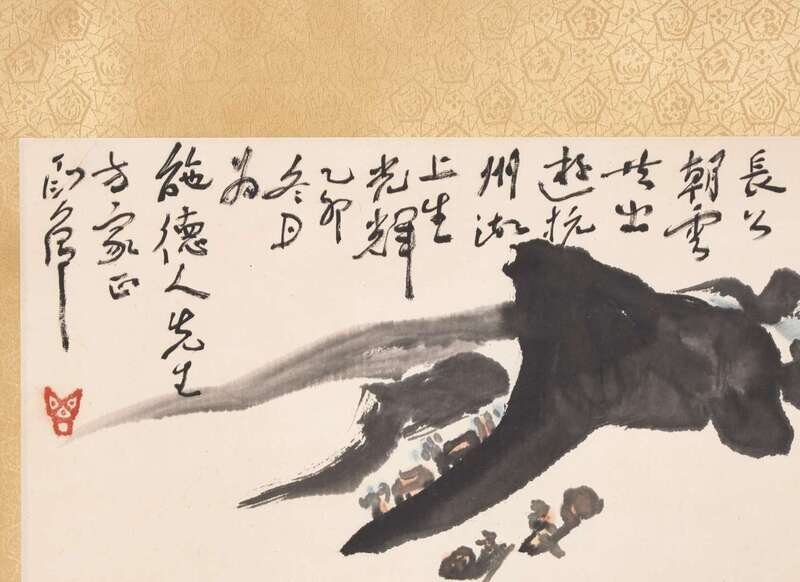 長公
朝雲
共出
遊杭
州湖
上生
光輝
乙卯
冬日
為
施德人先生
方家正